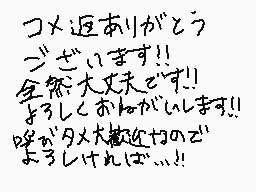 コメ返ありがとう
ございます!!
全然大丈夫です!!
よろしくおねがいします!!
咲がタメ大歓迎なので
よろしければ…!!